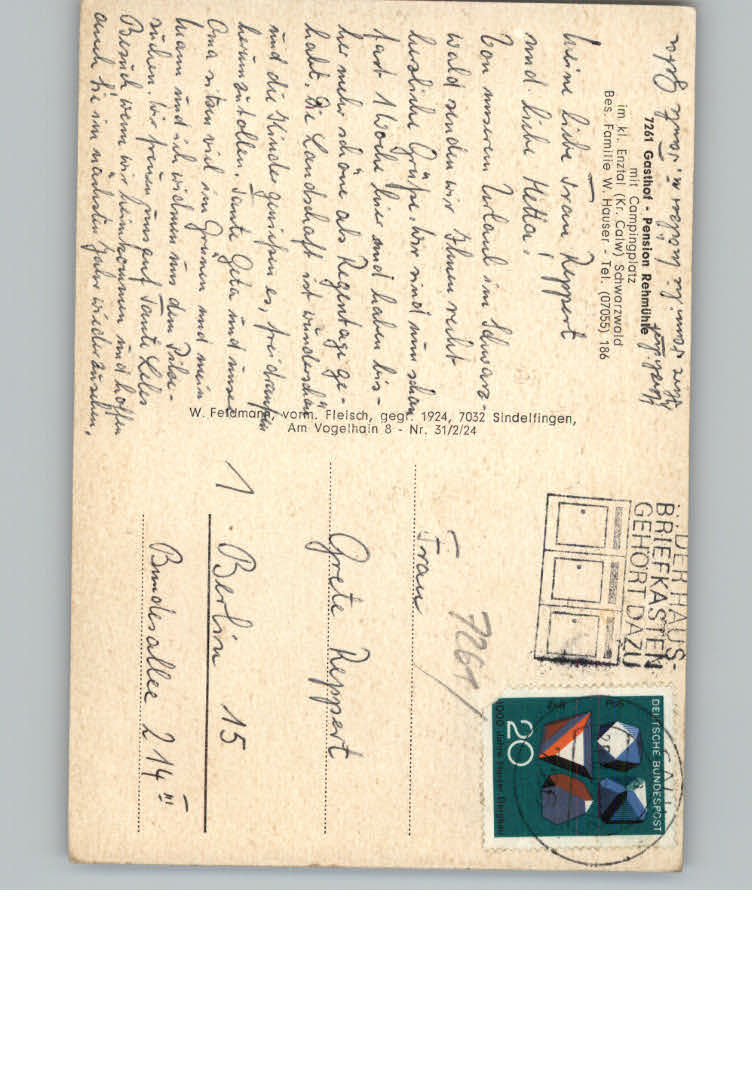 7261 Gasthof - Pension Rehmühle
mit Campingplatz
im kl. Enztal (Kr. Calw) Schwarzwald
Bes. Familie W. Hauser - Tel. (07055) 186
Meine liebe Frau Reppert
und liebe Hella!
Von unserem Urlaub im Schwarz-
wald senden wir Ihnen recht
herzliche Grüße. Wir sind nun schon
fast 1 Woche hier und haben bis-
her mehr schöne als Regentage ge-
habt. Die Landschaft ist wunderschön
und die Kinder genießen es, frei draußen
herumzutollen. Tante Geta und unsere
Oma sitzen viel im Grünen und mein
Mann und ich widmen uns dem Pilze-
suchen. Wir freuen uns auf Tante Leles
Besuch wenn wir heimkommen und hoffen
auch Sie im nächsten Jahr wiederzusehen.
Ihre Fam.
W. Feldmann, vorm. Fleisch, gegr. 1924, 7032 Sindelfingen,
Am Vogelhain 8 - Nr. 31/2/24
...DER HAUS-
BRIEFKASTEN
GEHÖRT DAZU
DEUTSCHE BUNDESPOST
20
1000 Jahre Harzer Bergbau
7261
Frau
Grete Reppert
1 Berlin 15
Bundesallee 214 III